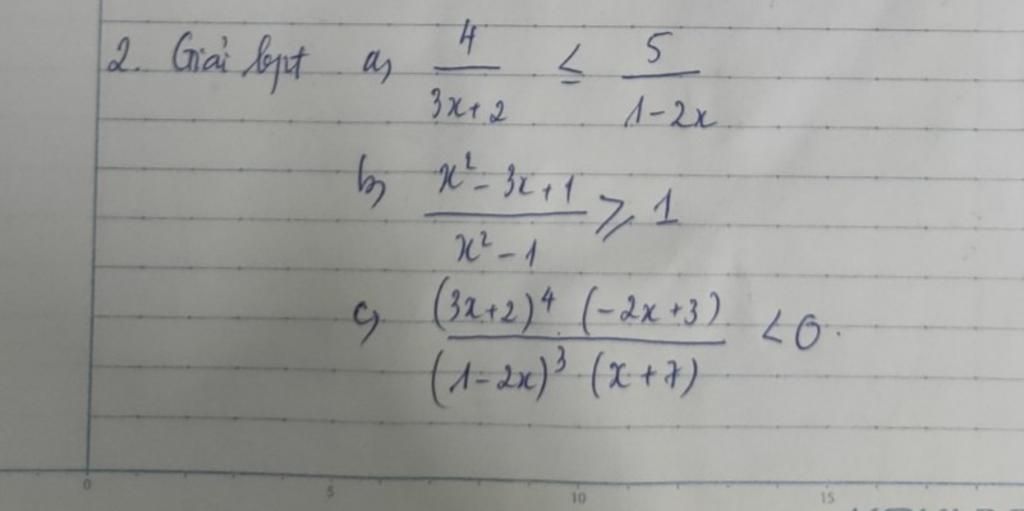 2. Giải bpt a, 4/(3x+2) ≤ 5/(1-2x)
b, (x²-3x+1)/(x²-1) ≥ 1
c, ((3x+2)⁴ (-2x+3))/((1-2x)³ (x+7)) < 0.
0 5 10 15